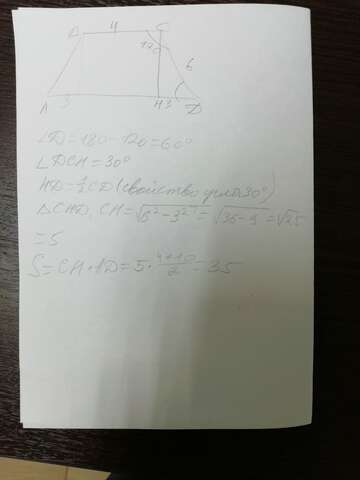 B 4 C
120
6
A 3 H 3 D
∠D=180-120=60°
∠DCH=30°
HD=½CD (свойство угла 30°)
ΔCHD, CH=√6²-3²=√36-9=√25
=5
S=CH·AD=5·4+10/2=35